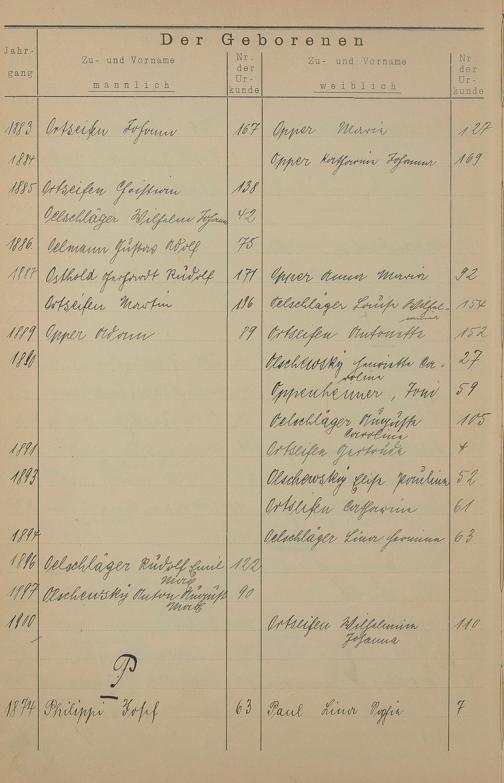 Der Geborenen
Jahr-
gang
Zu- und Vorname
männlich
Nr.
der
Ur-
kunde
Zu- und Vorname
weiblich
Nr
der
Ur-
kunde
1883 Ortseifen Johann 167 Opper Maria 127
1884 Opper Katharina Johanna 169
1885 Ortseifen Christian 138
Oelschläger Wilhelm Johann 42
1886. Oelmann Gustav Adolf 75
1887 Osthold Gerhardt Rudolf 171 Opper Anna Maria 92
Ortseifen Martin 196 Oelschläger Louise Wilhel-
mine 154
1889 Opper Adam 89 Ortseifen Antonette 152
1890 Olschewsky Henriette Ca-
roline 27
Oppenheimer, Toni 59
Oelschläger Auguste
Carolina 105
1891 Ortseifen Gertrude 4
1893 Olschewsky Elise Paulina 52
Ortseifen Catharina 61
1894 Oelschläger Lina Hermina 63
1896 Oelschläger Rudolf Emil
Max 122
1897 Olschewsky Anton August
Max 90
1900 Ortseifen Wilhelmina
Johanna 110
P
1874 Philippi Josef 63 Paul Lina Sophia 7